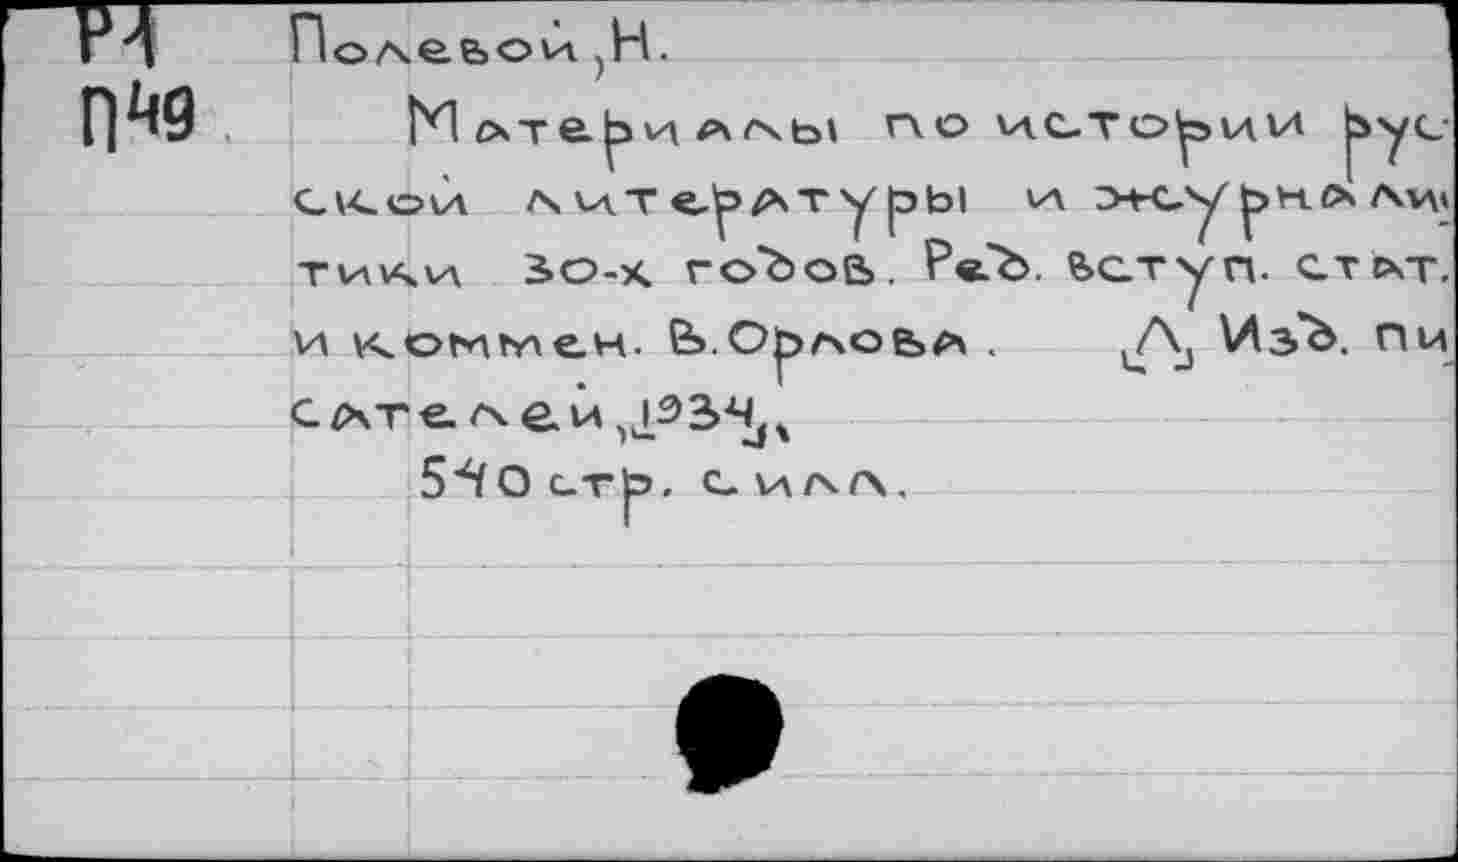 Р1 Полевой, Н.
П49 Материалы по истории рус
ской литературы и журнали
тики 30-х годов. Ред. вступ. стат.
и коммен. В. Орлова. [Л] Изд. пи
сателей, [1934]
540 стр. с илл.